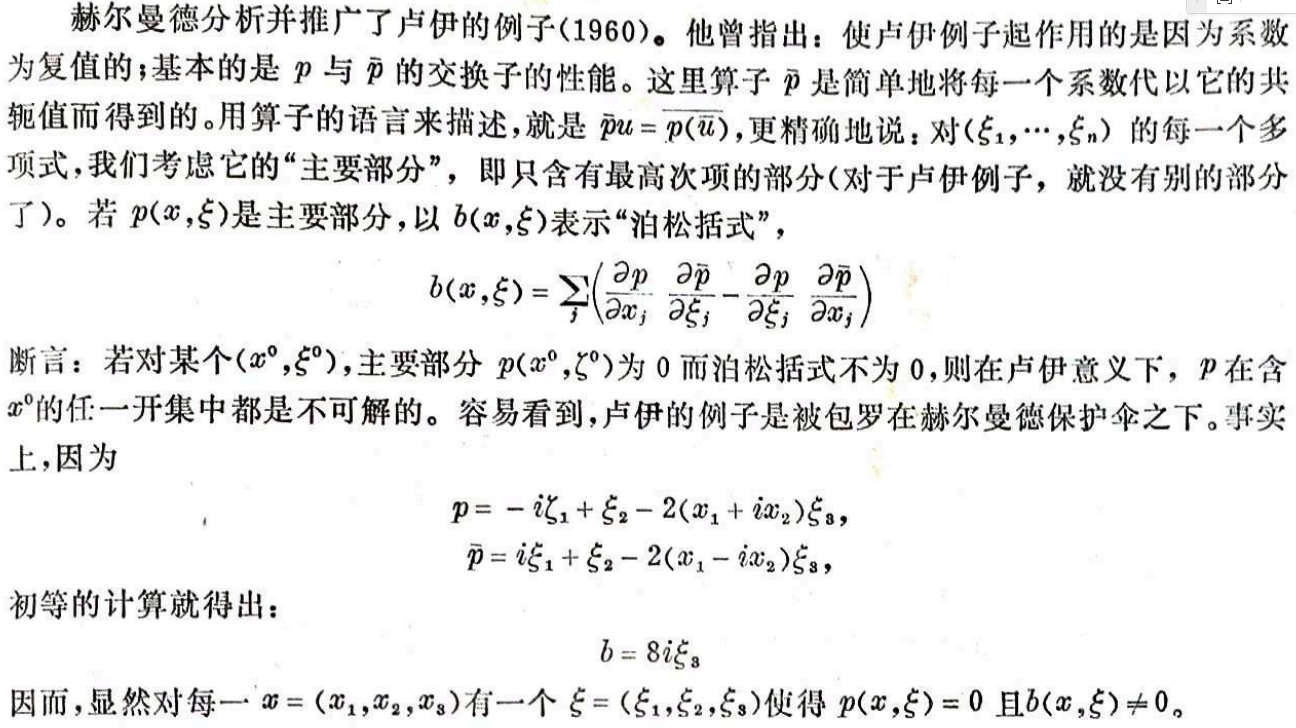 赫尔曼德分析并推广了卢伊的例子(1960)。他曾指出：使卢伊例子起作用的是因为系数
为复值的；基本的是 p 与 p̄ 的交换子的性能。这里算子 p̄ 是简单地将每一个系数代以它的共
轭值而得到的。用算子的语言来描述，就是 p̄u = \overline{p(ū)}，更精确地说：对(ξ₁,…,ξₙ) 的每一个多
项式，我们考虑它的“主要部分”，即只含有最高次项的部分(对于卢伊例子，就没有别的部分
了)。若 p(x,ξ)是主要部分，以 b(x,ξ)表示“泊松括式”，
b(x,ξ) = ∑_j (∂p/∂x_j ∂p̄/∂ξ_j − ∂p/∂ξ_j ∂p̄/∂x_j)
断言：若对某个(x⁰,ξ⁰)，主要部分 p(x⁰,ζ⁰)为 0 而泊松括式不为 0，则在卢伊意义下，p 在含
x⁰的任一开集中都是不可解的。容易看到，卢伊的例子是被包罗在赫尔曼德保护伞之下。事实
上，因为
p = − iζ₁ + ξ₂ − 2(x₁ + ix₂)ξ₃,
p̄ = iξ₁ + ξ₂ − 2(x₁ − ix₂)ξ₃,
初等的计算就得出：
b = 8iξ₃
因而，显然对每一 x = (x₁,x₂,x₃)有一个 ξ = (ξ₁,ξ₂,ξ₃)使得 p(x,ξ) = 0 且b(x,ξ) ≠ 0。